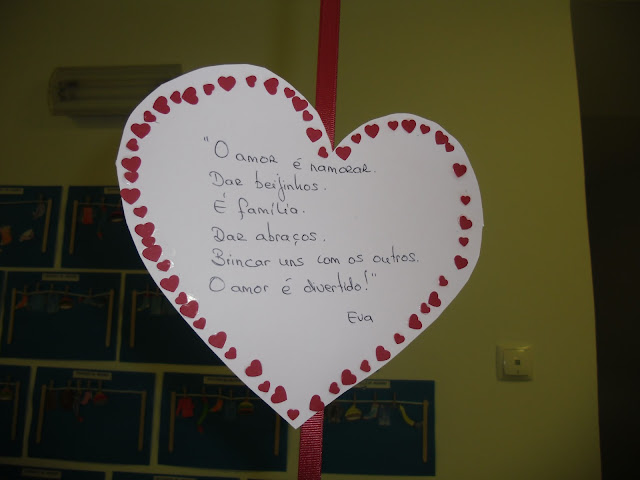 "O amor é namorar.
Dar beijinhos.
É família.
Dar abraços.
Brincar uns com os outros.
O amor é divertido!"
Eva